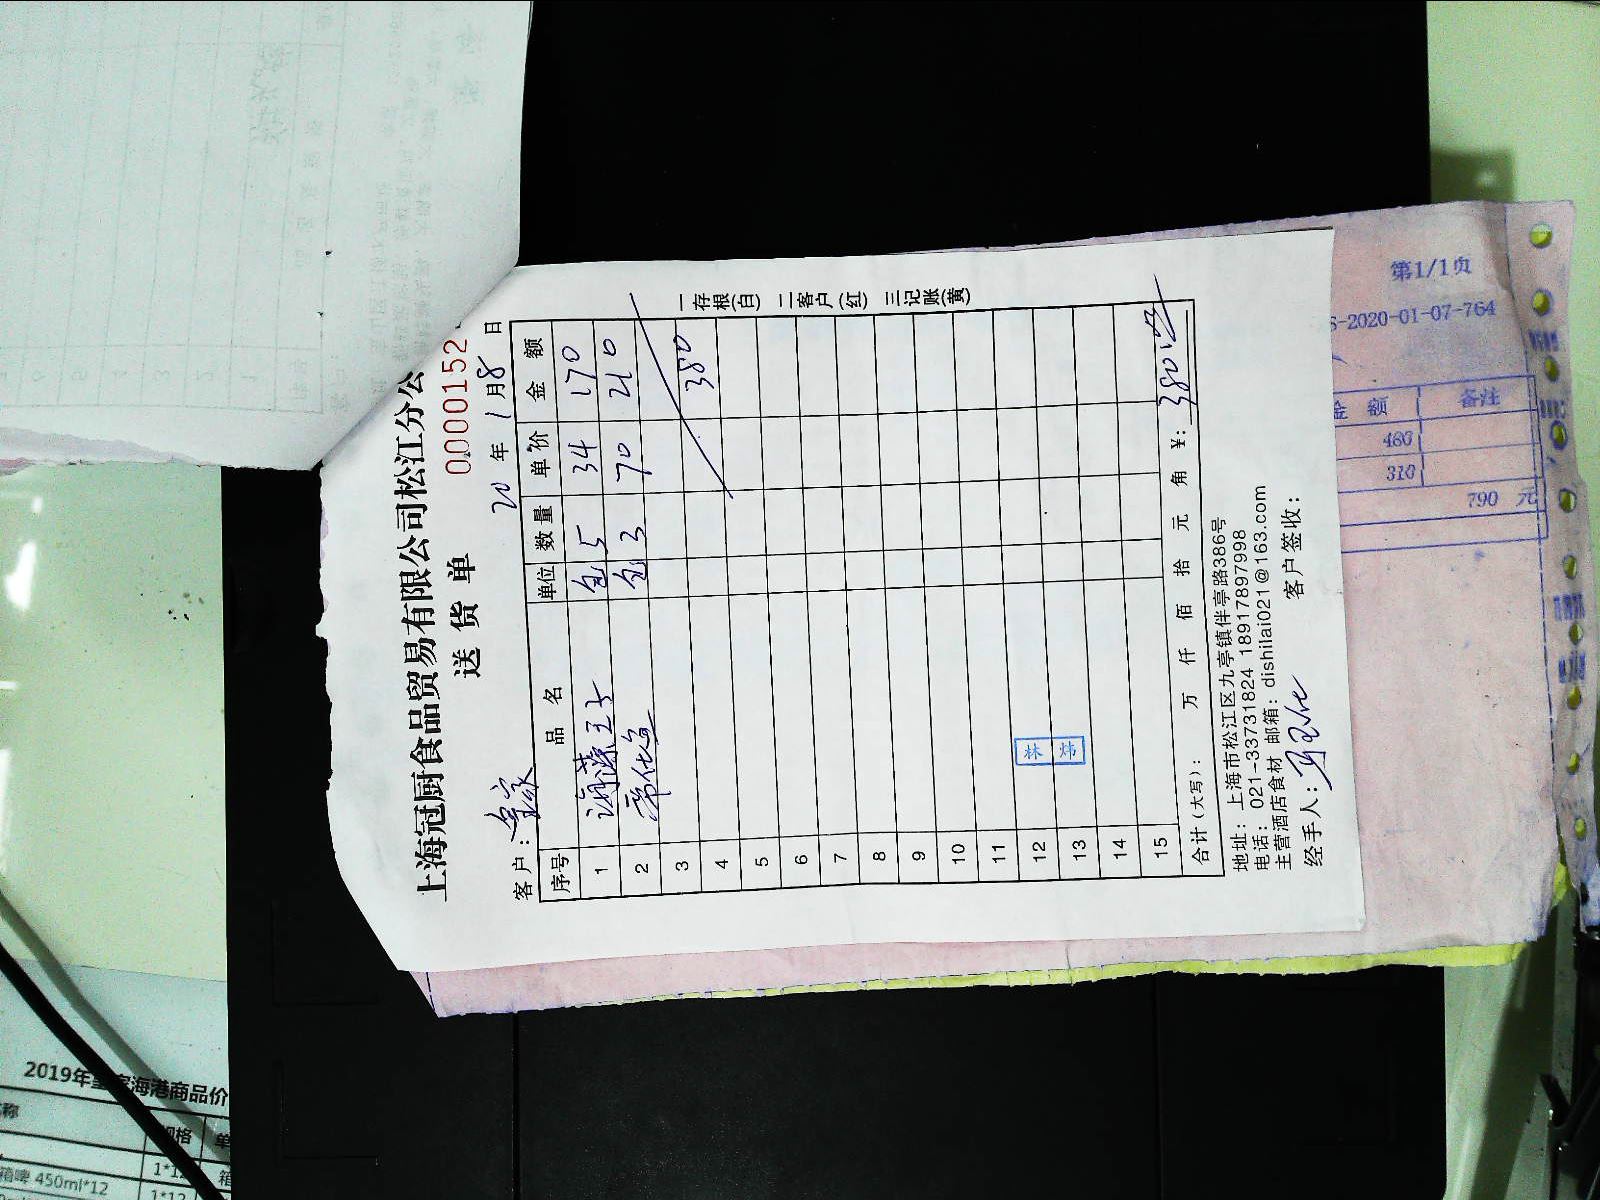 上海冠厨食品贸易有限公司松江分公
送货单 0000152
客户: 皇家 20年1月8日
序号 品名 单位 数量 单价 金额
1 海藻 包 5 34 170
2 包 3 70 210
3
4 380
5
6
7
8
9
10
11
12
13
14
15
林炜
合计(大写): 万 仟 佰 拾 元 角 ¥: 380
一存根(白) 二客户(红) 三记账(黄)
地址: 上海市松江区九亭镇伴亭路386号
电话: 021-33731824 18917897998
主营酒店食材 邮箱: dishilai021@163.com
经手人: 客户签收:
第1/1页
-2020-01-07-764
额 备注
480
310
790 元
2019年皇家海港商品价
称 规格 单
1*12 箱
箱啤 450ml*12 1*12